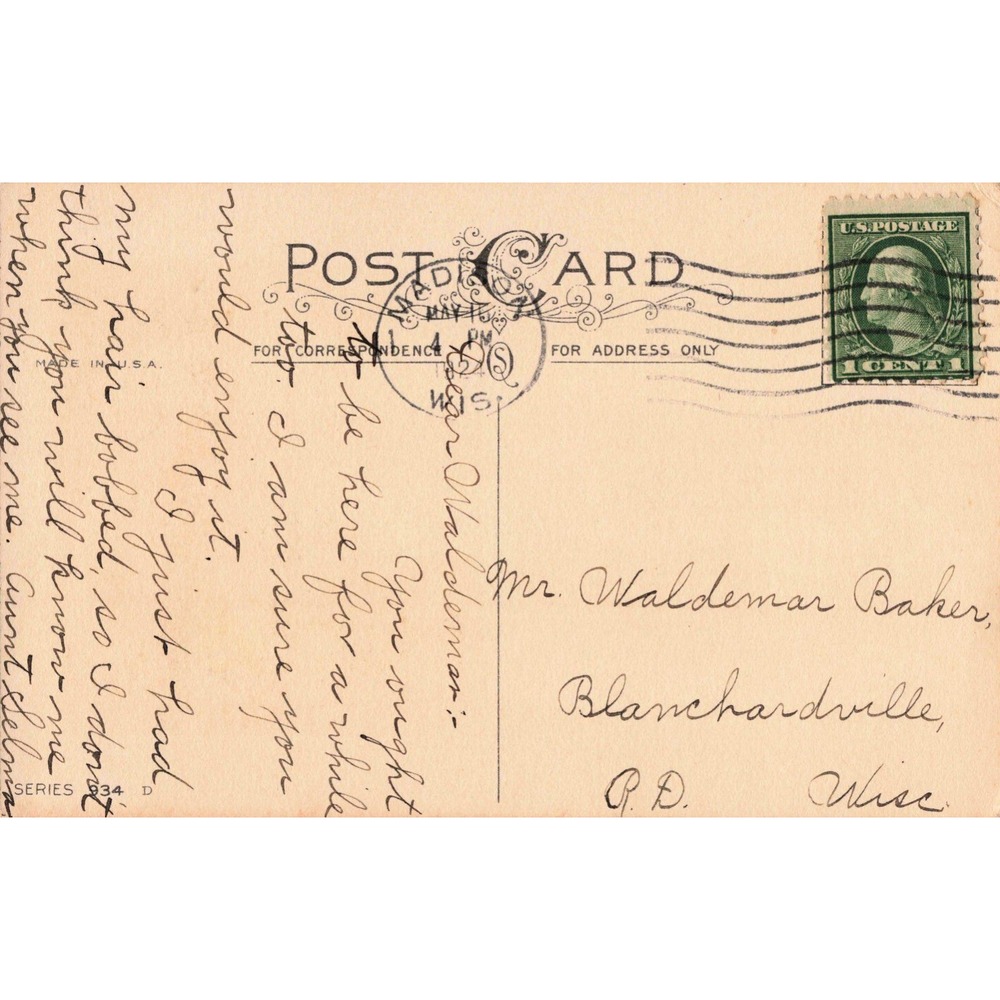 POST CARD
MADISON
MAY 15
4 PM
WIS.
U.S. POSTAGE
1 CENT 1
FOR CORRESPONDENCE
FOR ADDRESS ONLY
MADE IN U.S.A.
Dear Waldemar:-
You ought
to be here for a while
too. I am sure you
would enjoy it.
I just had
my hair bobbed, so I don't
think you will know me
when you see me. Aunt Selma
Mr. Waldemar Baker,
Blanchardville,
R.D. Wisc.
SERIES 934 D